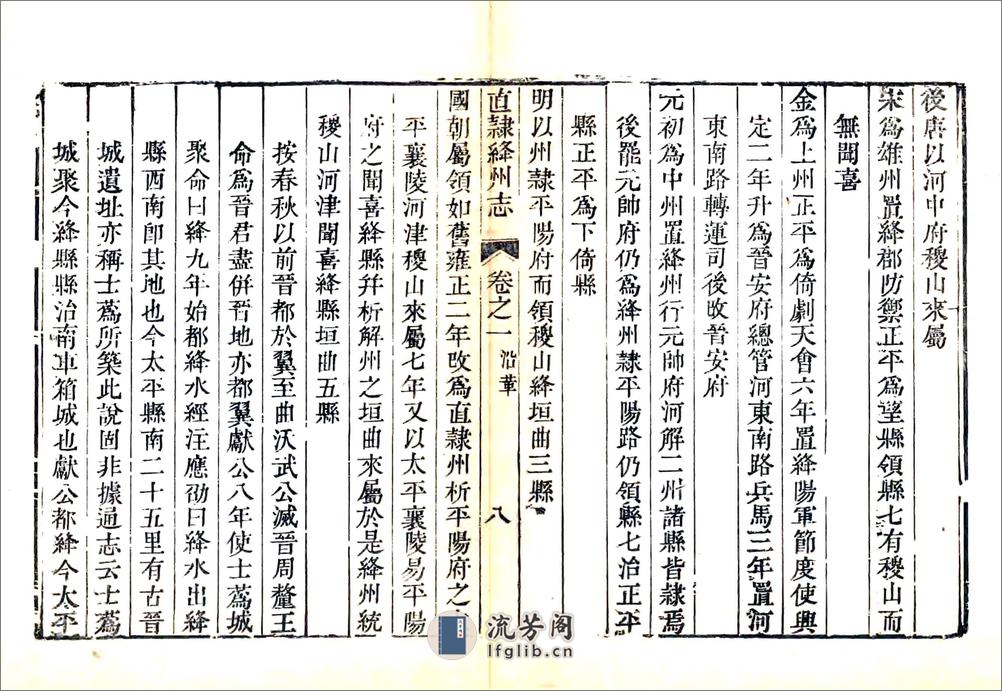 後唐以河中府稷山來屬
宋為雄州置絳郡防禦正平為望縣領縣七有稷山而
無聞喜
金為上州正平為倚劇天會六年置絳陽軍節度使興
定二年升為晉安府總管河東南路兵馬三年置河
東南路轉運司後改晉安府
元初為中州置絳州行元帥府河解二州諸縣皆隷焉
後罷元帥府仍為絳州隷平陽路仍領縣七治正平
縣正平為下倚縣
明以州隷平陽府而領稷山絳垣曲三縣
直隷絳州志 卷之一 沿革 八
國朝屬領如舊雍正二年改為直隷州析平陽府之太
平襄陵河津稷山來屬七年又以太平襄陵易平陽
府之聞喜絳縣幷析解州之垣曲來屬於是絳州統
稷山河津聞喜絳縣垣曲五縣
按春秋以前晉都於翼至曲沃武公滅晉周釐王
命為晉君盡併晉地亦都翼獻公八年使士蔿城
聚命曰絳九年始都絳水經注應劭曰絳水出絳
縣西南卽其地也今太平縣南二十五里有古晉
城遺址亦稱士蔿所築此說固非據通志云士蔿
城聚今絳縣縣治南車箱城也獻公都絳今太平
流芳阁
lfglib.cn